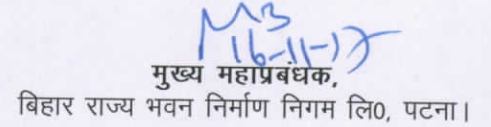 16-11-17
मुख्य महाप्रबंधक,
बिहार राज्य भवन निर्माण निगम लि0, पटना।